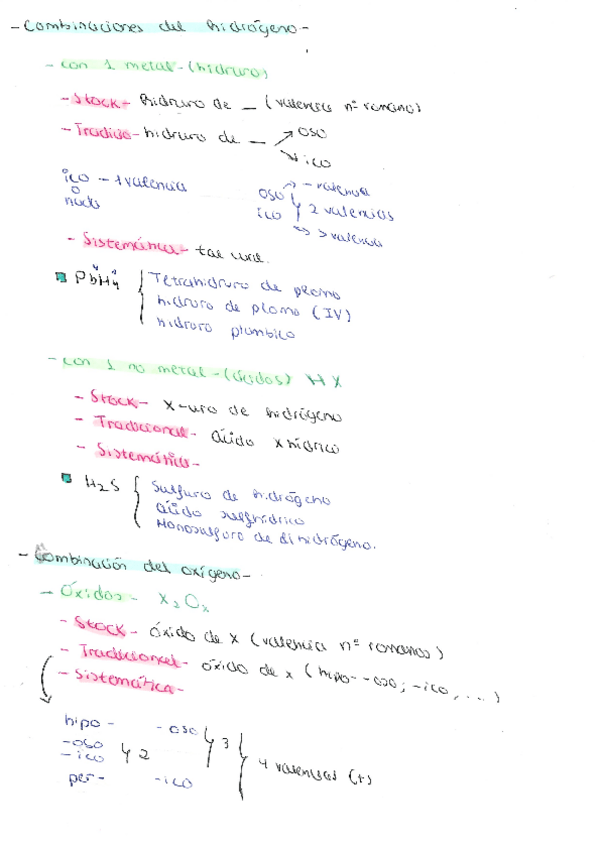 - Combinaciones del hidrógeno -
- con 1 metal - (hidruro)
- Stock - hidruro de __ (valencia nº romano)
- Tradicio - hidruro de __ oso
ico
ico - 1 valencia
o
nada
oso - valencia
ico 2 valencias
> valencia
- Sistemática - tal cual.
PbH4 Tetrahidruro de plomo
hidruro de plomo (IV)
hidruro plúmbico
- con 1 no metal - (ácidos) HX
- Stock - X-uro de hidrógeno
- Tradicional - ácido xhídrico
- Sistemática -
H2S Sulfuro de hidrógeno
ácido sulfhídrico
Monosulfuro de dihidrógeno.
- Combinación del oxígeno -
- Óxidos - X2Ox
- Stock - óxido de x (valencia nº romanos)
- Tradicional - óxido de x (hipo- -oso; -ico, ...)
- Sistemática -
hipo - - oso
- oso
- ico 2 3 4 valencias (+)
per - - ico